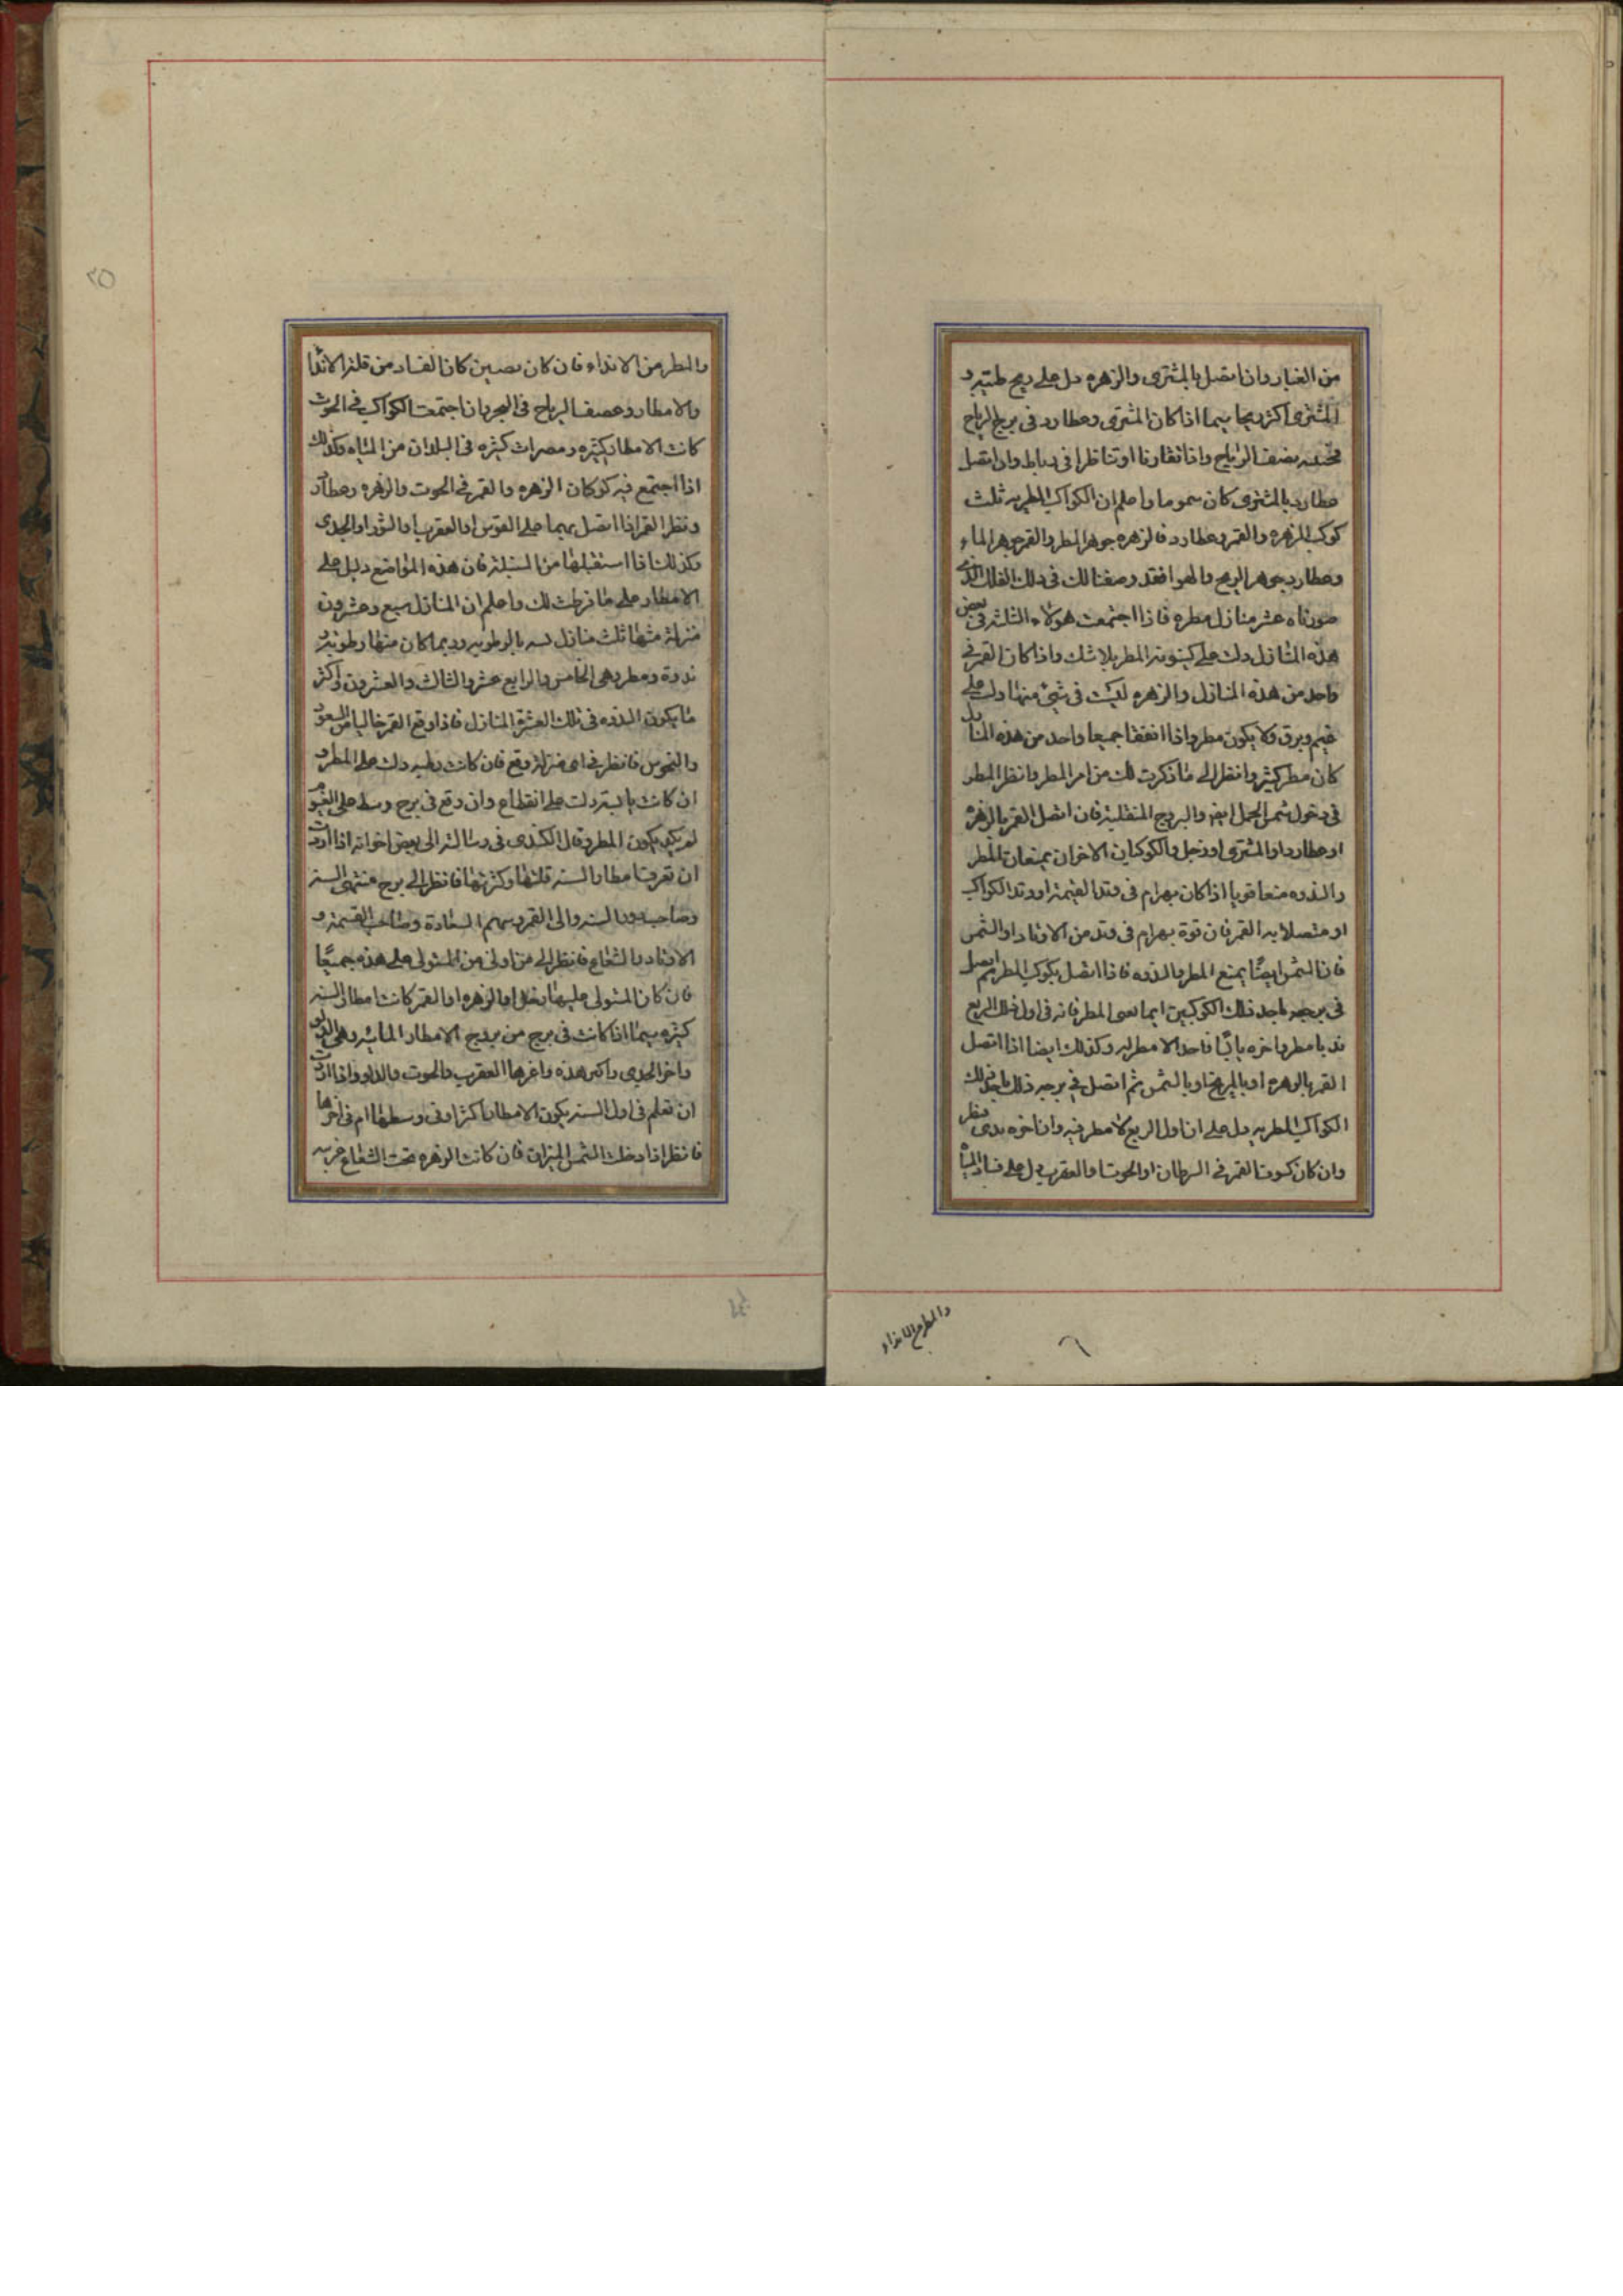 من الغبار وان اتصل بالمشترى والزهره دل على ريح طيبه و
المشترى اكثر ريحا سيما اذا كان المشترى وعطارد فى برج الرياح
الرياح واذا تقارنا او تناظرا فى رباط وان اتصل
عطارد بالمشترى كان سموما واعلم ان الكواكب المطريه ثلث
كوكب الزهره والقمر وعطارد فالزهره جوهر المطر والقمر جوهر الماء
وعطارد جوهر الريح والهوا فقد وصفنا لك فى ذلك الفلك الذى
صورناه عشر منازل مطره فاذا اجتمعت هولاء الثلثه فى بعض
هذه المنازل دلت على كينونه المطر بلا شك واذا كان القمر فى
واحد من هذه المنازل والزهره ليست فى شئ منها دلت على
غيم وبرق ولا يكون مطر واذا اتفقا جميعا واحد من هذه المنازل
كان مطر كثير وانظر الى ما ذكرت لك من امر المطر وانظر المطر
فى دخول شمس الحمل ايضا والبروج المنقلبة فان اتصل القمر بالزهرة
او عطارد او المشترى او زحل والكوكباين الاخران يمنعان المطر
والندوه منعا قويا اذا كان بهرام فى وتد الغيمة او وتد الكواكب
او متصلا به القمر فان قوة بهرام فى وتد من الاوتاد او الشمس
فان الشمس ايضًا يمنع المطر والندوه فاذا اتصل بكوكب المطر ثم اتصل
فى برجه باحد ذلك الكوكبين ايما المطر فانه فى اول ذلك الربع
ندبا مطر واخره يابسًا واحد الامطر له وكذلك ايضا اذا اتصل
القمر بالزهره او بالمريخ او بالشمس ثم اتصل فى برجه ذلك باحد تلك
الكواكب المطريه دل على ان اول الربع لا مطر فيه وان اخره ندى مطر
وان كان كسوف القمر فى السرطان او الحوت او العقرب دل على فساد المياه
والمطر من الانداء
والمطر من الانداء فان كان كان الفساد من قلة الاندا
والامطار وعصف الرياح فى البحر وان اجتمعت الكواكب فى الحوت
كانت الامطار كثيره ومضرات كثيره فى البلدان من المياه وكذلك
اذا اجتمع فيه كوكبان الزهره والقمر فى الحوت والزهره وعطارد
ونظر القمر اذا اتصل بهما على القوس او العقرب او الثور او الجدى
وكذلك اذا استقبلها من السنبلة فان هذه المواضع دليل على
الامطار على ما فرطت لك واعلم ان المنازل سبع وعشرون
منزلة منها ثلث منازل بالرطوبه وربما كان منها رطوبه و
ندوة ومطر وهى الخامس والرابع عشر والثالث والعشرون واكثر
ما يكون الندوه فى تلك العشرة المنازل فاذا وقع القمر خاليا من السعود
والنحوس فانظر فى اى منزلة وقع فان كانت رطبه دلت على المطر و
ان كانت يابسة دلت على انقطاع وان وقع فى برج وسط على الغيوم
لم يكن يكون المطر وقال الكندى فى رسالته الى بعض اخوانه اذا اردت
ان تعرف امطار السنه قلتها وكثرتها فانظر الى برج منتهى السنه
وصاحب دور السنه والى القمر وسهم السعادة وصاحب القسمة و
الاوتاد والشعاع فانظر الى من اولى من المستولى على هذه جميعًا
فان كان المستولى عليها زحل او الزهره او القمر كانت امطار السنه
كثيره سيما اذا كانت فى برج من بروج الامطار المائيه وهى
واخر الجدى واكثر هذه واغزرها العقرب والحوت والدلو واذا اردت
ان تعلم فى اول السنه يكون الامطار اكثر او فى وسطها ام فى اخرها
فانظر اذا دخلت الشمس الميزان فان كانت الزهره تحت الشعاع غربيه
٢٥